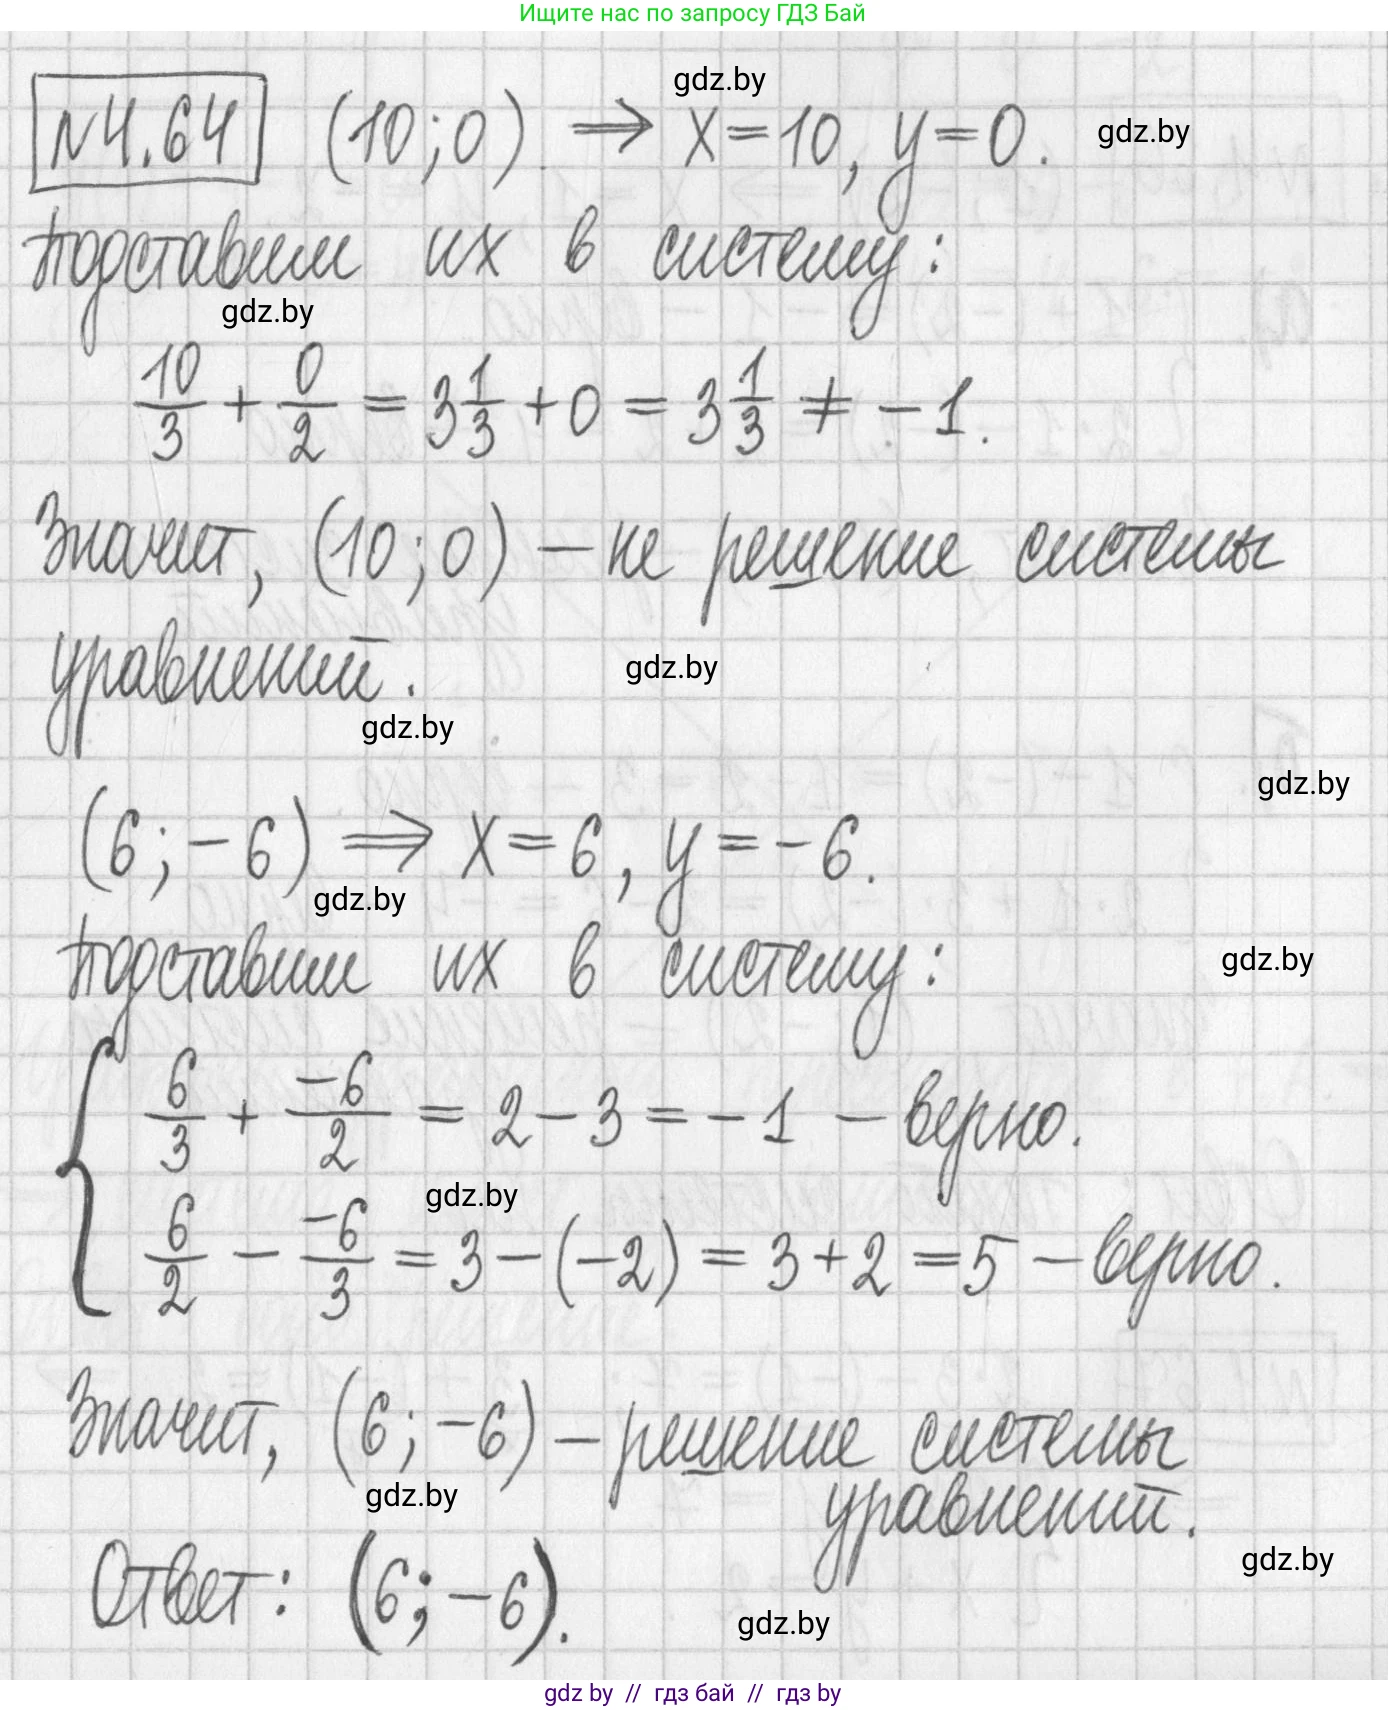 Ищите нас по запросу ГДЗ Бай
gdz.by
№4.64 (10;0). ⇒ x=10, y=0. gdz.by
Подставим их в систему:
gdz.by
10/3 + 0/2 = 3 1/3 + 0 = 3 1/3 ≠ -1.
Значит, (10;0) — не решение системы
уравнений. gdz.by
gdz.by
gdz.by
(6;-6) ⇒ x=6, y=-6.
gdz.by
Подставим их в систему: gdz.by
{ 6/3 + -6/2 = 2-3 = -1 — верно.
gdz.by
6/2 - -6/3 = 3-(-2) = 3+2 = 5 — верно.
Значит, (6;-6) — решение системы
gdz.by уравнений.
gdz.by
Ответ: (6;-6).
gdz.by
gdz by // гдз бай // гдз by